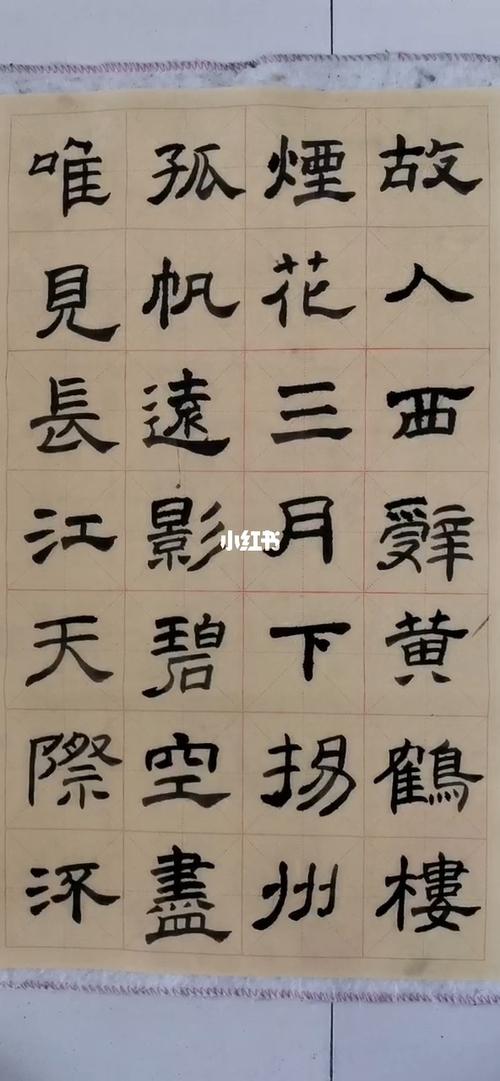 故人西辭黄鶴樓
煙花三月下揚州
孤帆遠影碧空盡
唯見長江天際㳅
小红书